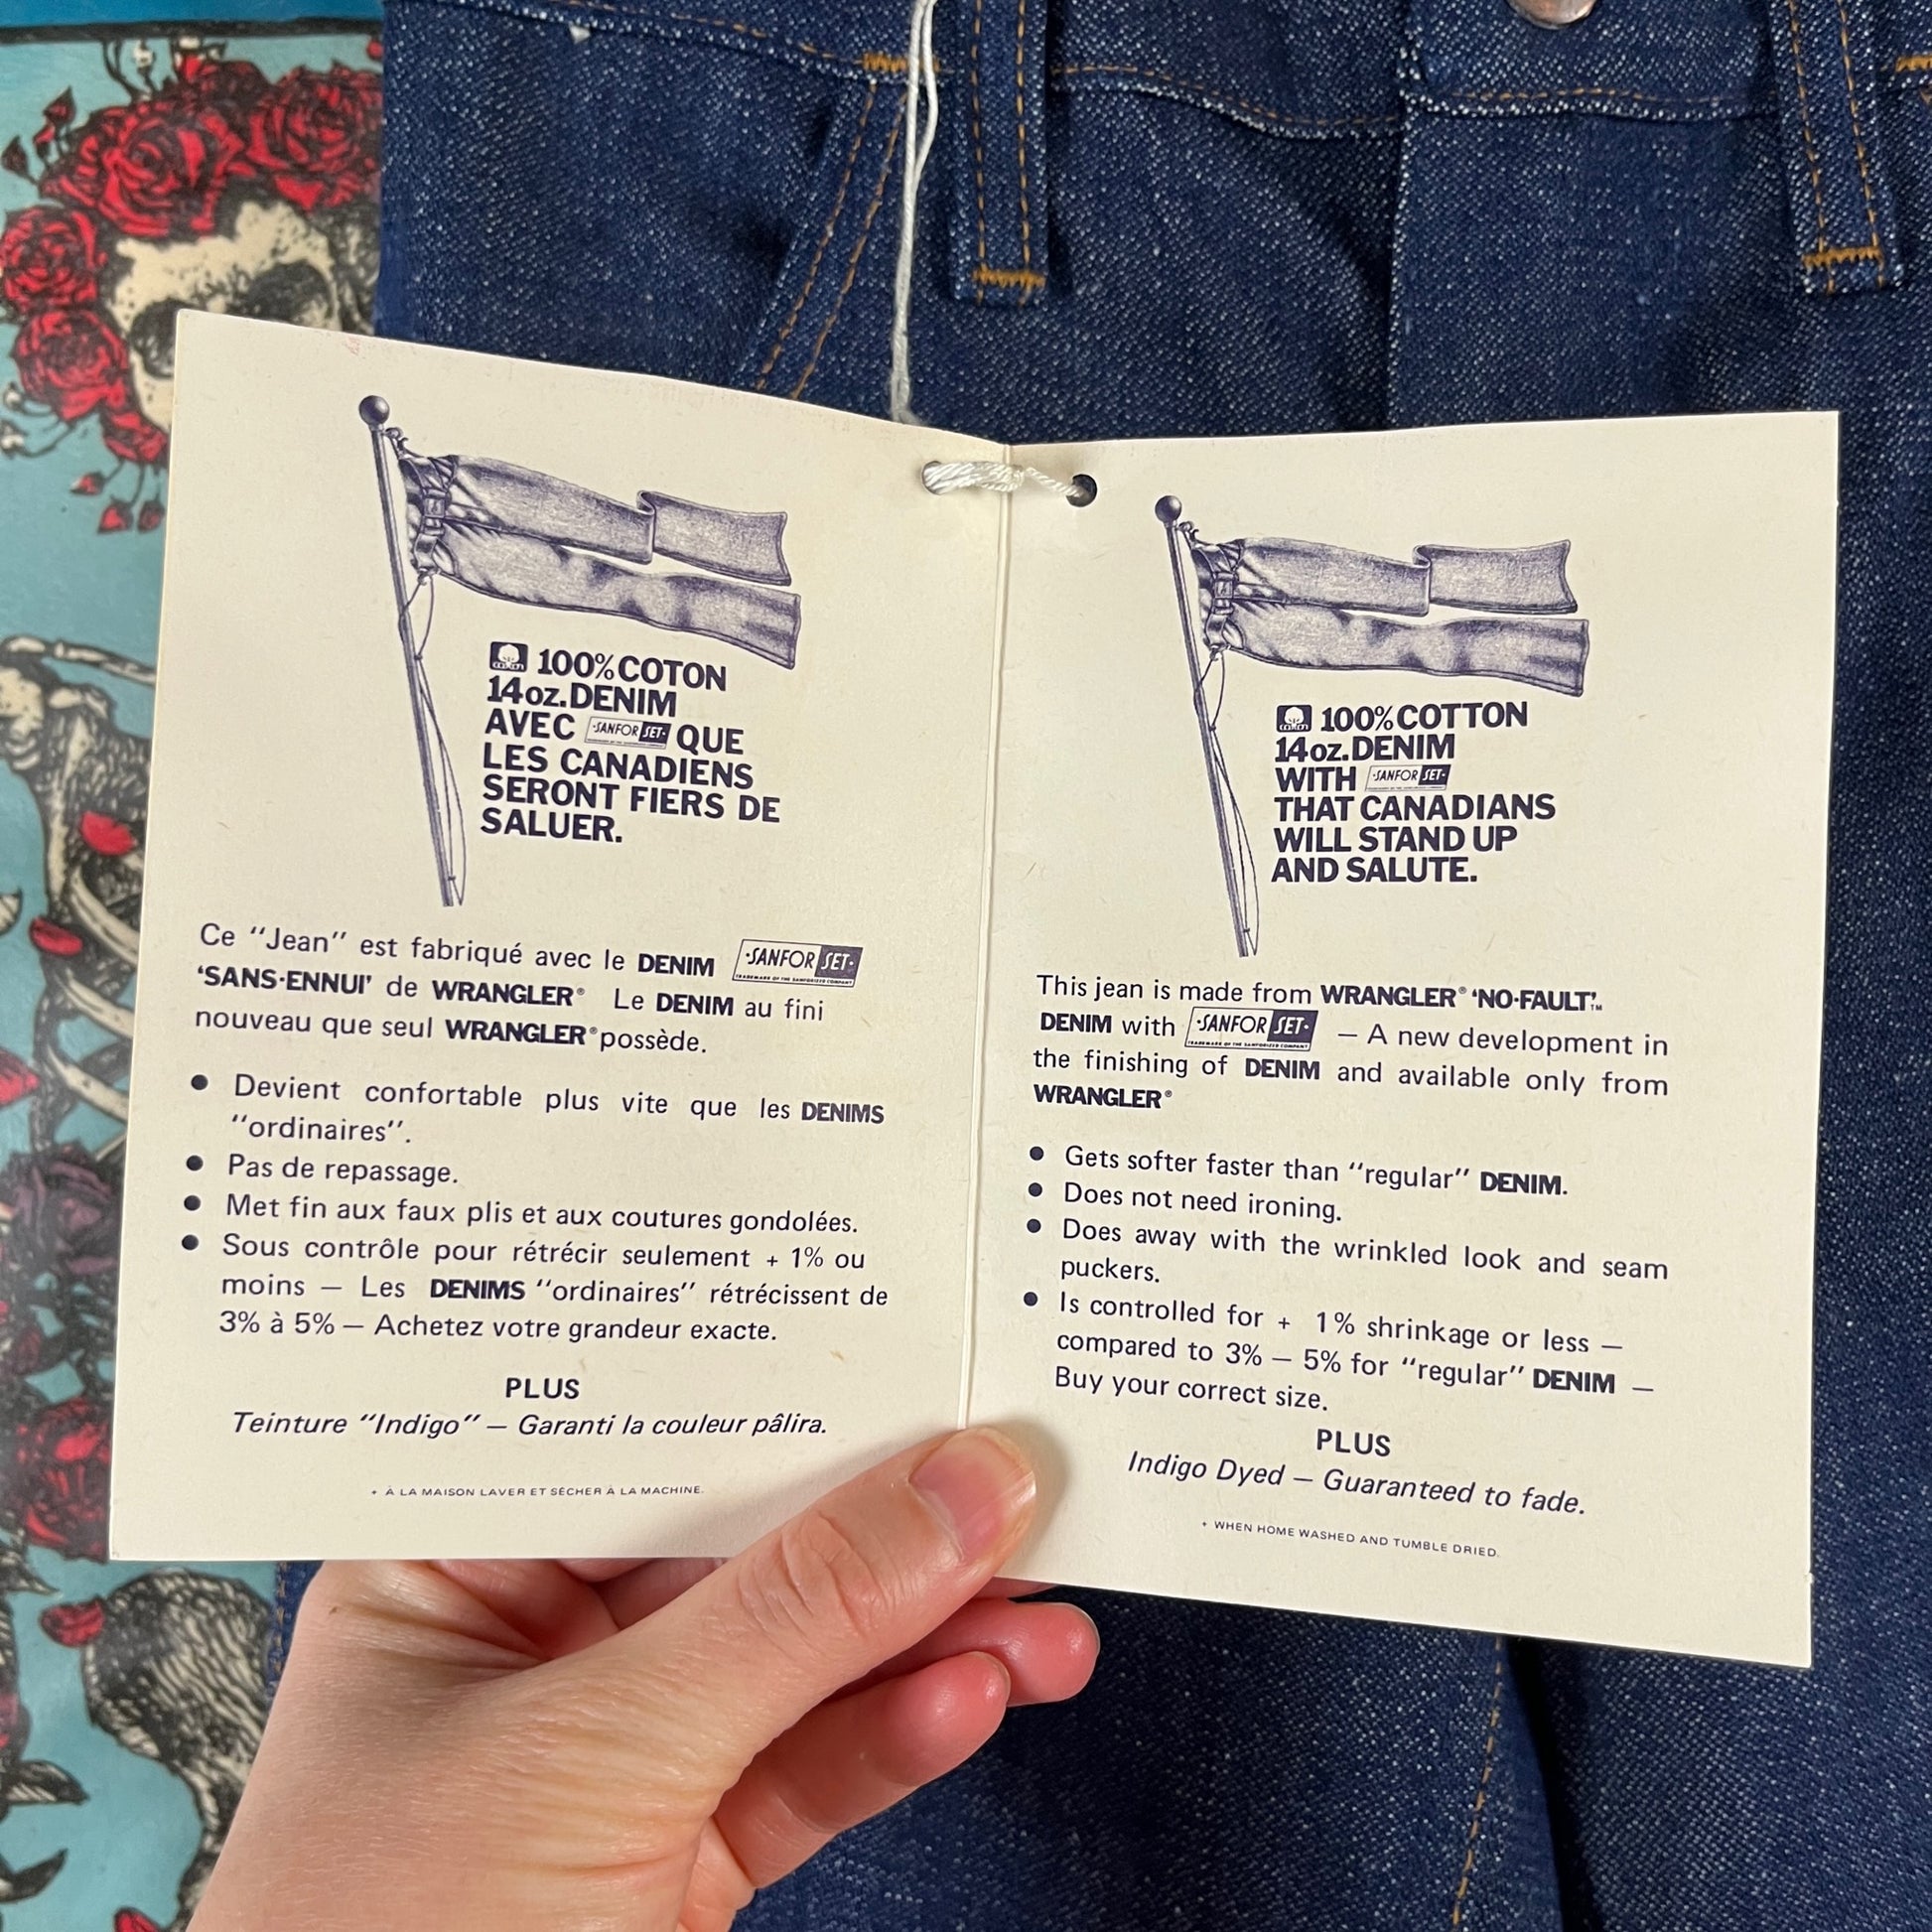 100% COTON
14 oz. DENIM
AVEC ·SANFOR SET· QUE
LES CANADIENS
SERONT FIERS DE
SALUER.
Ce "Jean" est fabriqué avec le DENIM ·SANFOR SET·
TRADEMARK OF THE SANFORIZED COMPANY
'SANS-ENNUI' de WRANGLER® Le DENIM au fini
nouveau que seul WRANGLER® possède.
● Devient confortable plus vite que les DENIMS
"ordinaires".
● Pas de repassage.
● Met fin aux faux plis et aux coutures gondolées.
● Sous contrôle pour rétrécir seulement + 1% ou
moins — Les DENIMS "ordinaires" rétrécissent de
3% à 5% — Achetez votre grandeur exacte.
PLUS
Teinture "Indigo" — Garanti la couleur pâlira.
+ À LA MAISON LAVER ET SÉCHER À LA MACHINE.
100% COTTON
14 oz. DENIM
WITH ·SANFOR SET·
THAT CANADIANS
WILL STAND UP
AND SALUTE.
This jean is made from WRANGLER® 'NO-FAULT'™
DENIM with ·SANFOR SET· — A new development in
TRADEMARK OF THE SANFORIZED COMPANY
the finishing of DENIM and available only from
WRANGLER®
● Gets softer faster than "regular" DENIM.
● Does not need ironing.
● Does away with the wrinkled look and seam
puckers.
● Is controlled for + 1% shrinkage or less —
compared to 3% — 5% for "regular" DENIM —
Buy your correct size.
PLUS
Indigo Dyed — Guaranteed to fade.
+ WHEN HOME WASHED AND TUMBLE DRIED.